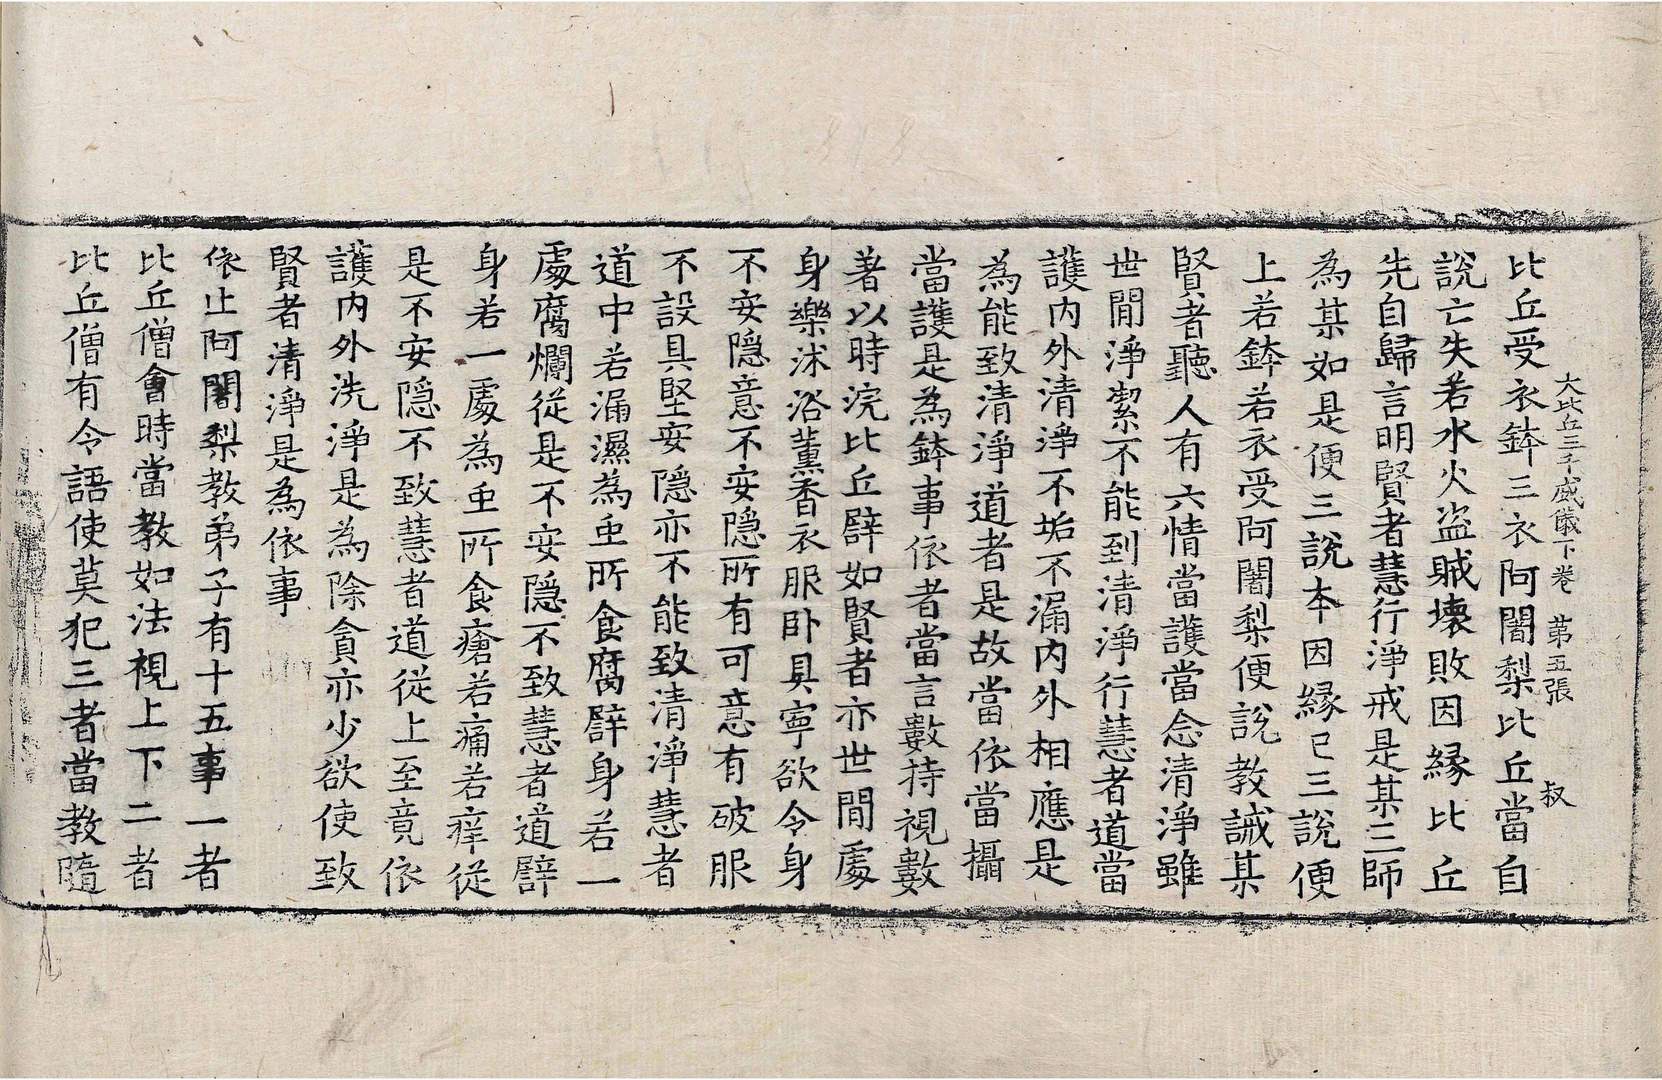 大比丘三千威儀下卷 苐五張 叔
比丘受衣鉢三衣阿闍梨比丘當自
說亡失若水火盗賊壊敗因縁比丘
先自歸言明賢者慧行淨戒是某三師
為某如是便三說本因縁已三說便
上若鉢若衣受阿闍梨便說教誡某
賢者聽人有六情當護當念清淨雖
世閒淨潔不能到清淨行慧者道當
護內外清淨不垢不漏內外相應是
為能致清淨道者是故當依當攝
當護是為鉢事依者當言數持視數
著以時浣比丘辟如賢者亦世間處
身樂沐浴薰香衣服卧具寧欲令身
不安隠意不安隠所有可意有破服
不設具堅安隠亦不能致清淨慧者
道中若漏濕為重所食腐辟身若一
處腐爛從是不安隠不致慧者道辟
身若一處為重所食瘡若痛若痒從
是不安隠不致慧者道從上至竟依
護內外洗淨是為除貪亦少欲使致
賢者清淨是為依事
依止阿闍梨教弟子有十五事一者
比丘僧會時當教如法視上下二者
比丘僧有令語使莫犯三者當教隨